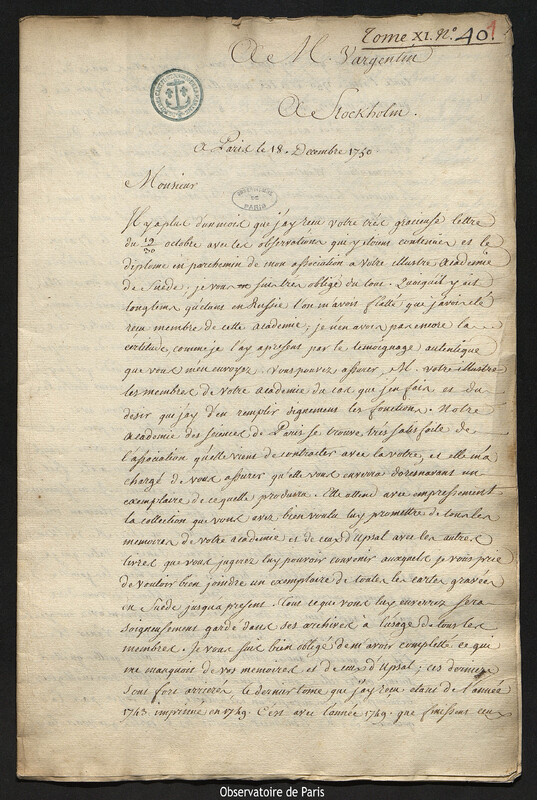 Tome XI. N.º 40. 1
A M. Vargentin
A Stockholm.
A Paris le 18. Decembre 1750
Monsieur
OBSERVATOIRE DE PARIS
Il y a plus d'un mois que j'ay reçu votre très gracieuse lettre
du 19/30 octobre avec les observations qui y étoient contenues et le
diplome en parchemin de mon association a votre illustre academie
de Suede; je vous suis très obligé du tout. Quoiqu'il y ait
longtems qu'étant en Russie l'on m'avoit flatté que j'avois été
reçu membre de cette academie, je n'en avois pas encore la
certitude, comme je l'ay apresent par le temoignage autentique
que vous m'en envoyez. Vous pouvez assurer, M. votre illustre
les membres de votre academie du cas que j'en fais et du
desir que j'ay d'en remplir dignement les fonctions. Notre
academie des sciences de Paris se trouve très satisfaite de
l'association qu'elle vient de contracter avec la votre, et elle m'a
chargé de vous assurer qu'elle vous enverra doresnavant un
exemplaire de ce qu'elle produira. Elle attend avec empressement
la collection que vous avez bien voulu luy promettre de tous les
memoires de votre academie et de ceux d'Upsal avec les autres
livres que vous jugerez luy pouvoir convenir auxquels je vous prie
de vouloir bien joindre un exemplaire de toutes les cartes gravées
en Suede jusqua present. Tout ce que vous luy enverrez sera
soigneusement gardé dans ses archives a l'usage de tous les
membres. Je vous suis bien obligé de m'avoir completté ce qui
me manquoit de vos memoires et de ceux d'Upsal; ces derniers
sont fort arrierés, le dernier tome que j'ay reçu étant de l'année
1743 imprimé en 1749. C'est avec l'année 1749. que finissent ceux
Observatoire de Paris